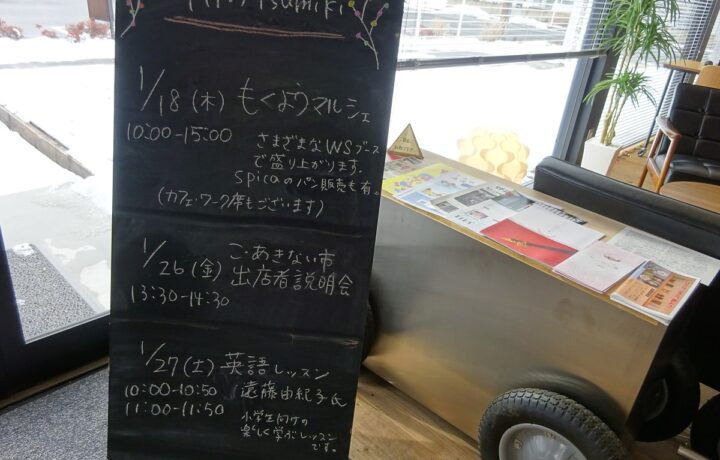 Tsumiki
1/18 (木) もくようマルシェ
10:00-15:00 さまざまなWSブース
で盛り上がります。
spicaのパン販売も有。
(カフェ・ワーク席もございます)
1/26 (金) こ・あきない市
出店者説明会
13:30-14:30
1/27 (土) 英語レッスン
10:00-10:50 遠藤由紀子氏
11:00-11:50 小学生向けの
楽しく学ぶレッスン
です。